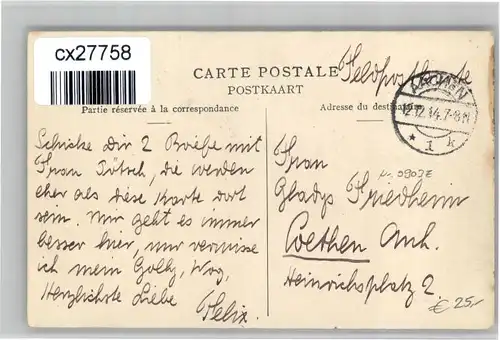 cx27758
CARTE POSTALE
POSTKAART
Feldpostkarte
Partie réservée à la correspondance
Adresse du destinataire
AACHEN
2.12.14.7-8N
* 1 k
Schicke Dir 2 Briefe mit
Frau Jötsch, die werden
eher als diese Karte dort
sein. Mir geht es immer
besser hier, nur vermisse
ich mein Golly, Wog,
Herzlichste Liebe
Felix.
Frau
Gladys Friedheim
Coethen Anh.
Heinrichsplatz 2.
€ 25,-